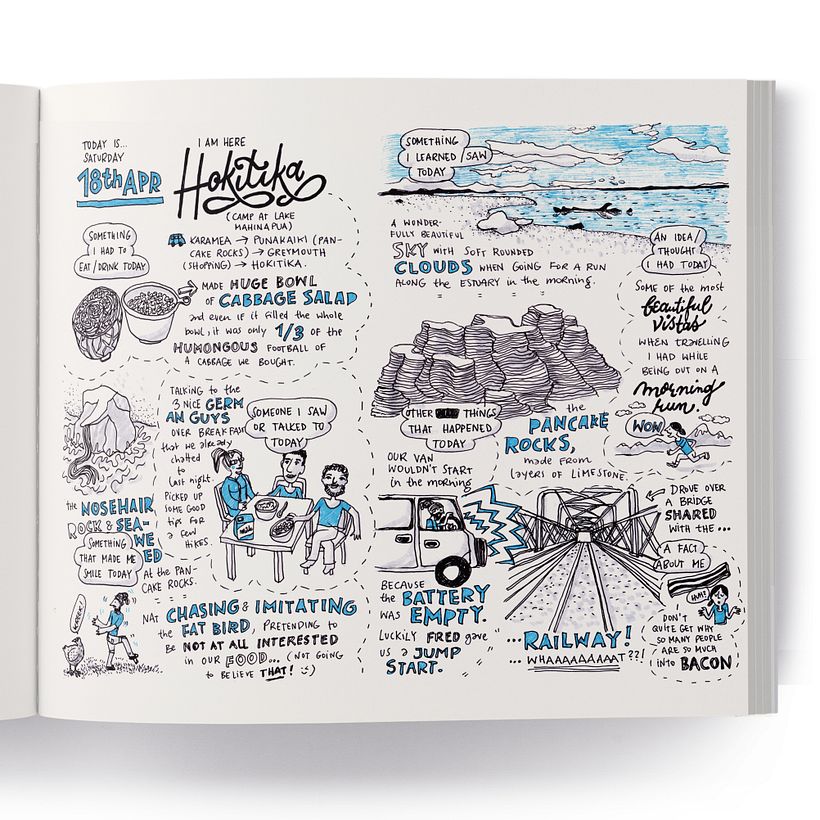 TODAY IS...
SATURDAY
18th APR
I AM HERE
Hokitika
(CAMP AT LAKE
MAHINAPUA)
KARAMEA → PUNAKAIKI (PAN-
CAKE ROCKS) → GREYMOUTH
(SHOPPING) → HOKITIKA.
SOMETHING
I HAD TO
EAT/DRINK TODAY
MADE HUGE BOWL
OF CABBAGE SALAD
and even if it filled the whole
bowl, it was only 1/3 of the
HUMONGOUS FOOTBALL OF
A CABBAGE WE BOUGHT.
TALKING to the
3 NICE GERM
AN GUYS
OVER BREAKFAST
that we already
chatted
to
last night.
PICKED UP
SOME GOOD
tips for
a few
HIKES.
SOMEONE I SAW
OR TALKED TO
TODAY
the NOSEHAIR
ROCK & SEA-
WE
ED
SOMETHING
THAT MADE ME
SMILE TODAY
At the PAN-
CAKE ROCKS.
NAT CHASING & IMITATING
the FAT BIRD, PRETENDING to
BE NOT AT ALL INTERESTED
in OUR FOOD... (NOT GOING
to BELIEVE THAT! :)
SOMETHING
I LEARNED/SAW
TODAY
A WONDER-
FULLY BEAUTIFUL
SKY with SOFT ROUNDED
CLOUDS WHEN GOING FOR A RUN
ALONG the ESTUARY in the MORNING.
AN IDEA/
THOUGHT
I HAD TODAY
SOME OF the MOST
beautiful
vistas
WHEN TRAVELLING
I HAD WHILE
BEING OUT ON A
morning
run.
WOW
OTHER THINGS
THAT HAPPENED
TODAY
the
PANCAKE
ROCKS,
made from
layers of LIMESTONE.
OUR VAN
WOULDN'T START
in the morning
BECAUSE
the BATTERY
WAS EMPTY.
LUCKILY FRED gave
us a JUMP
START.
DROVE OVER
A BRIDGE
SHARED
WITH the ...
...RAILWAY!
... WHAAAAAAAAT??!
A FACT
ABOUT ME
HM?!
DON'T
QUITE GET WHY
SO MANY PEOPLE
ARE SO MUCH
into BACON